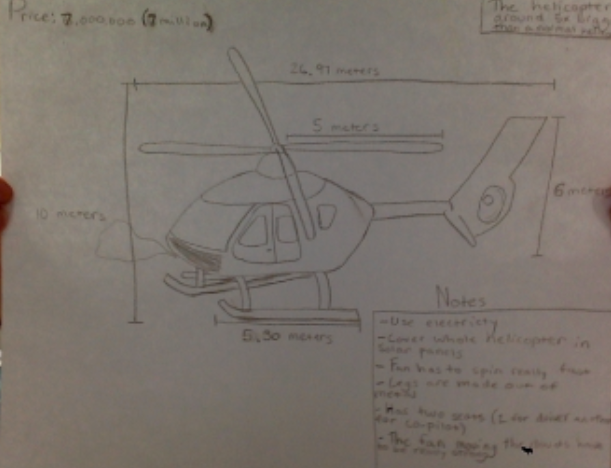 Price: 7,000,000 (7 million)
The helicopter
around 5x
than a normal
26.97 meters
5 meters
10 meters
6 meters
5.50 meters
Notes
- Use electricity
- Cover whole helicopter in
solar panels
- Fan has to spin really fast
- Legs are made out of
- Has two seats (1 for driver
for co-pilot)
- The fan the
to be really strong